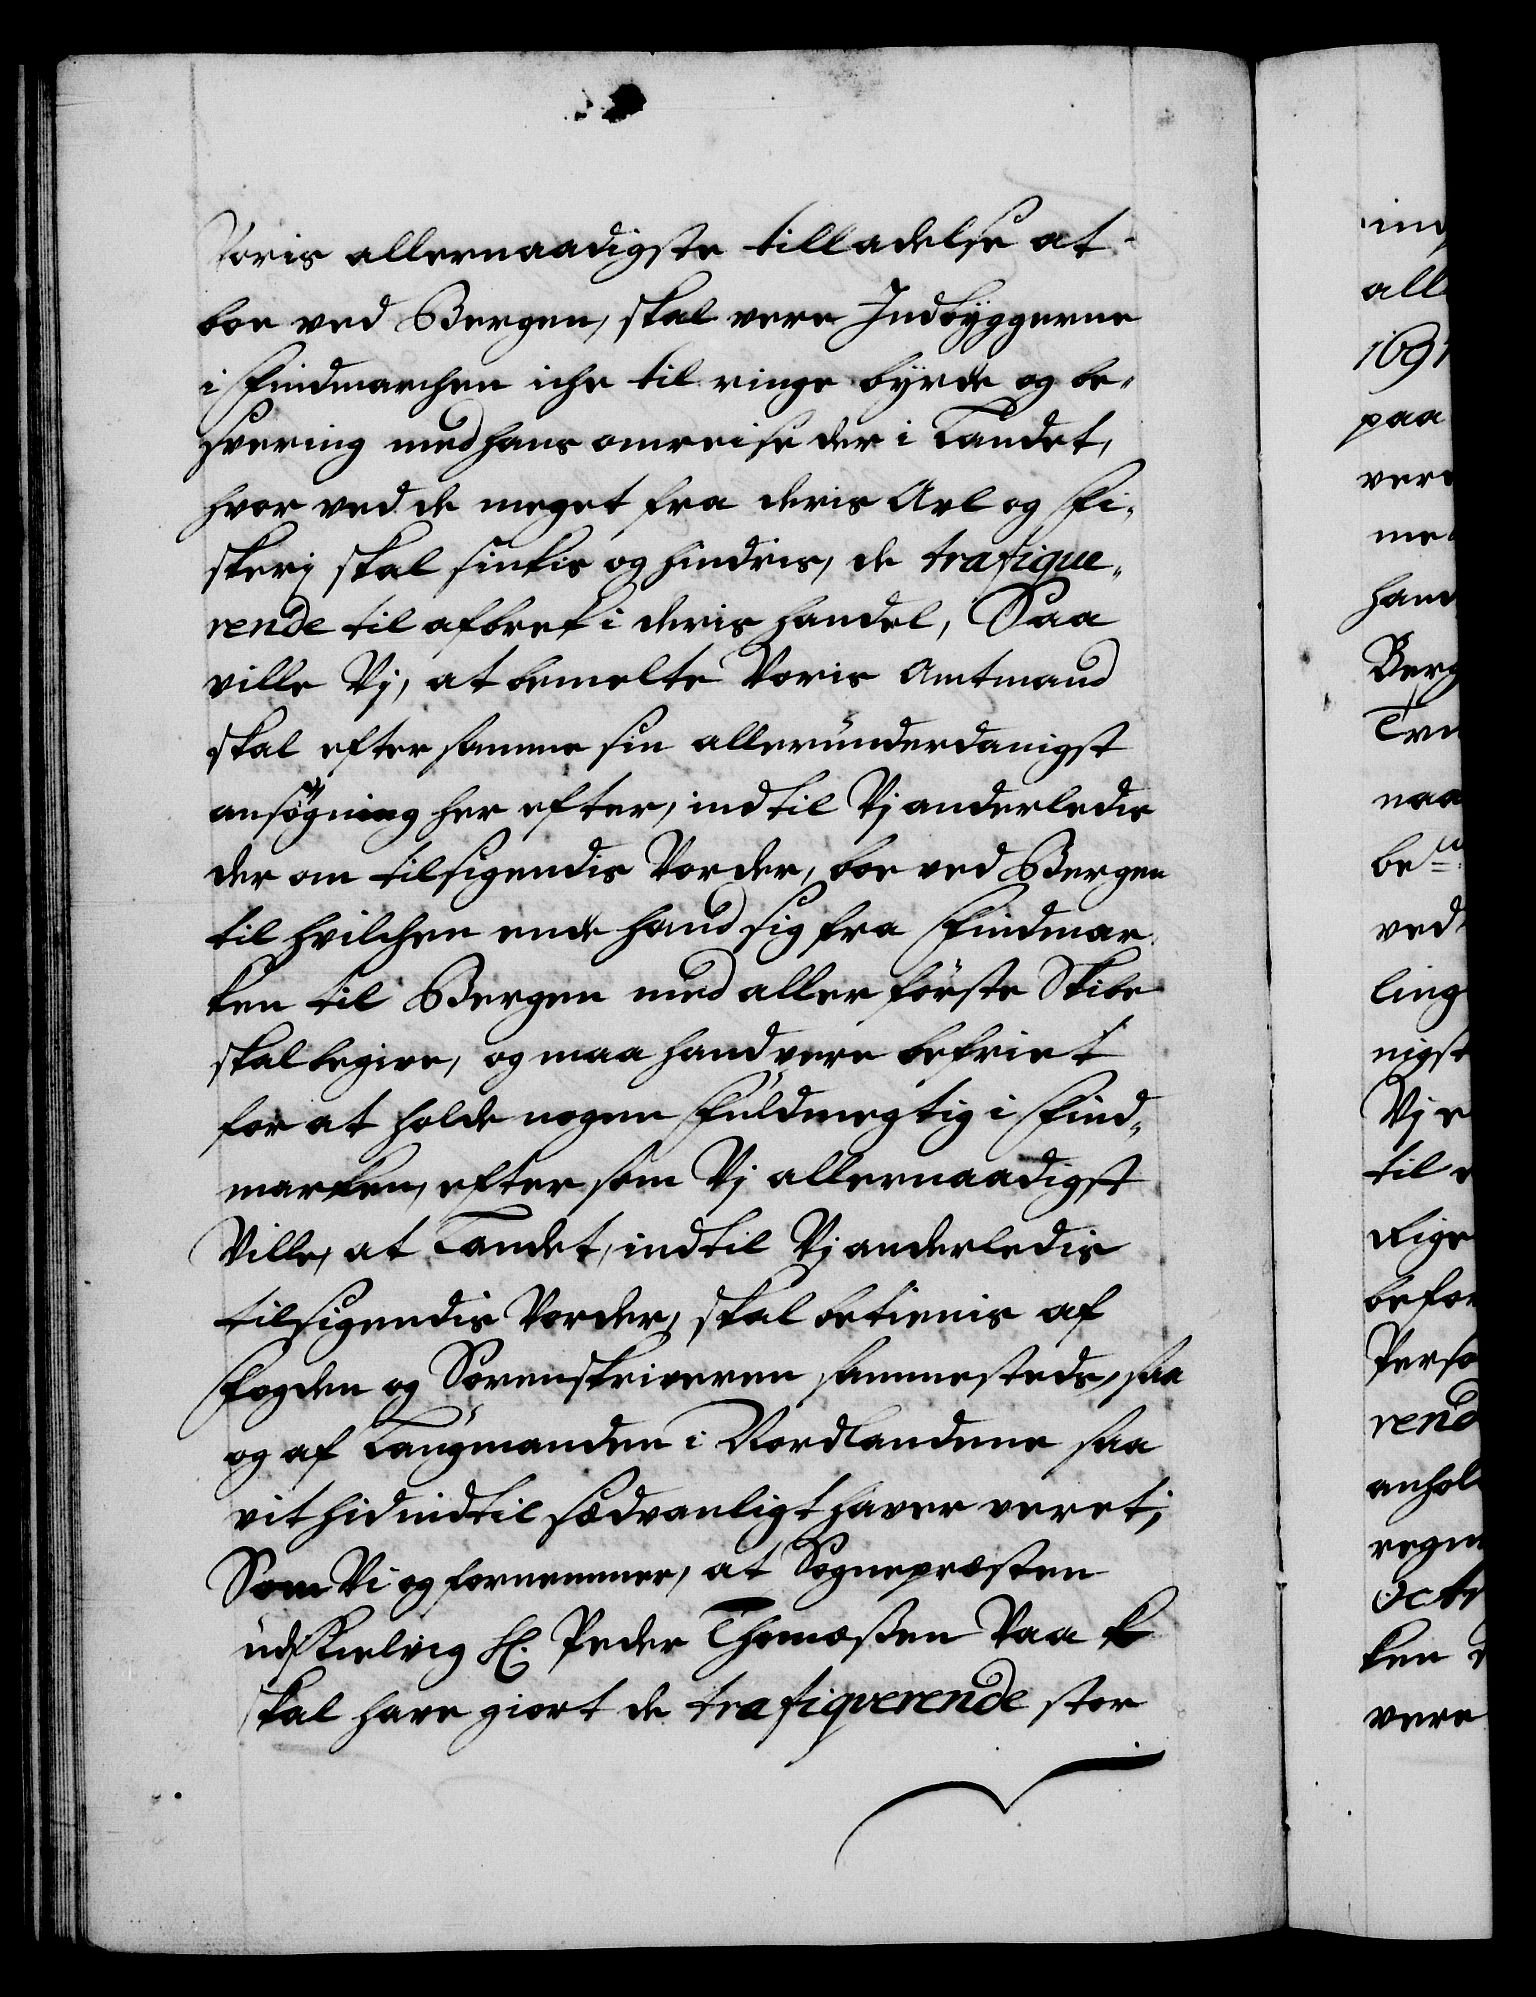 Voris allernaadigste tilladelse at
boe ved Bergen, skal vere Indbyggerne
i Findmarchen iche til ringe byrde og be-
svering med hans omreise der i Landet,
hvor ved de meget fra deris Avl og Fi-
skerj skal sinkis og hindris, de trafique-
rende til afbrek i deris handel, Saa
ville Vj, at bemelte Voris Amtmand
skal efter samme sin allerunderdanigst
ansøgning her efter, indtil Vj anderledis
der om tilsigendis Vorder, boe ved Bergen
til hvilchen ende hand sig fra Findmar-
ken til Bergen med aller første Skibe
skal begive, og maa hand vere befriet
for at holde nogen Fuldmegtig i Find-
marken, efter som Vj allernaadigst
Ville, at Landet, indtil Vj anderledis
tilsigendis Vorder, skal betienis af
Fogden og Sorenskriveren sammesteds, saa
og af Laugmanden i Nordlandene saa
vit hid indtil sædvanligt haver veret;
Som Vi og fornemmer, at Sognepræsten
ud Kielvig Hr. Peder Thomæssen Vaa
skal have giort de trafiqverende stor
all
1691
paa
ver
me
hand
Berg
naa
ved
ling
nigst
Vj
til
Rige
befor
Perso
rend
anhol
regn
Octr
ken
vere